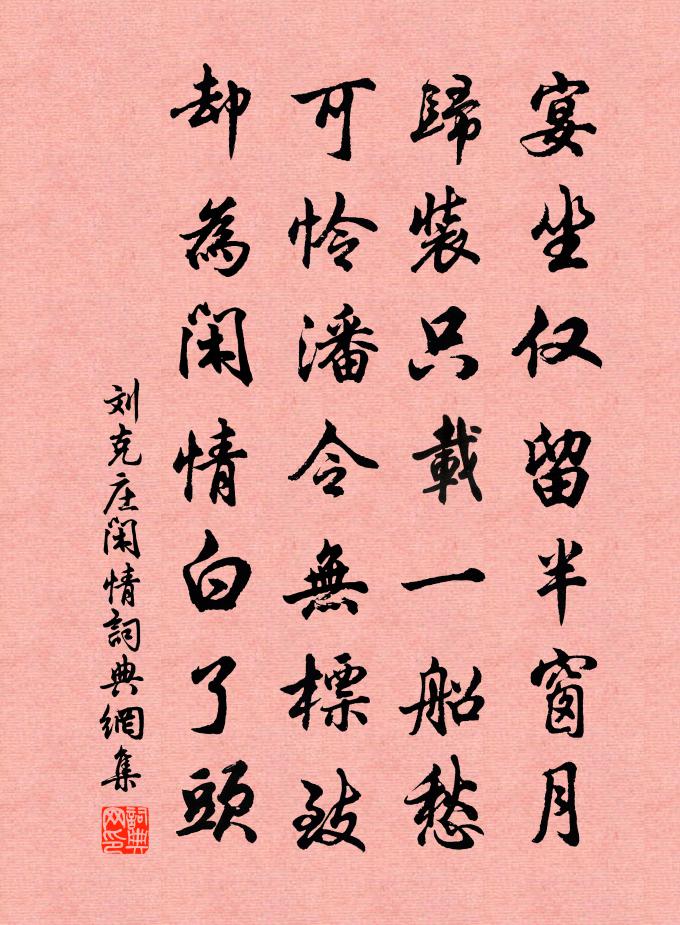 宴坐仅留半窗月
歸装只載一船愁
可怜潘令無標致
却為閑情白了頭
刘克庄閑情詞典網集
詞典网印